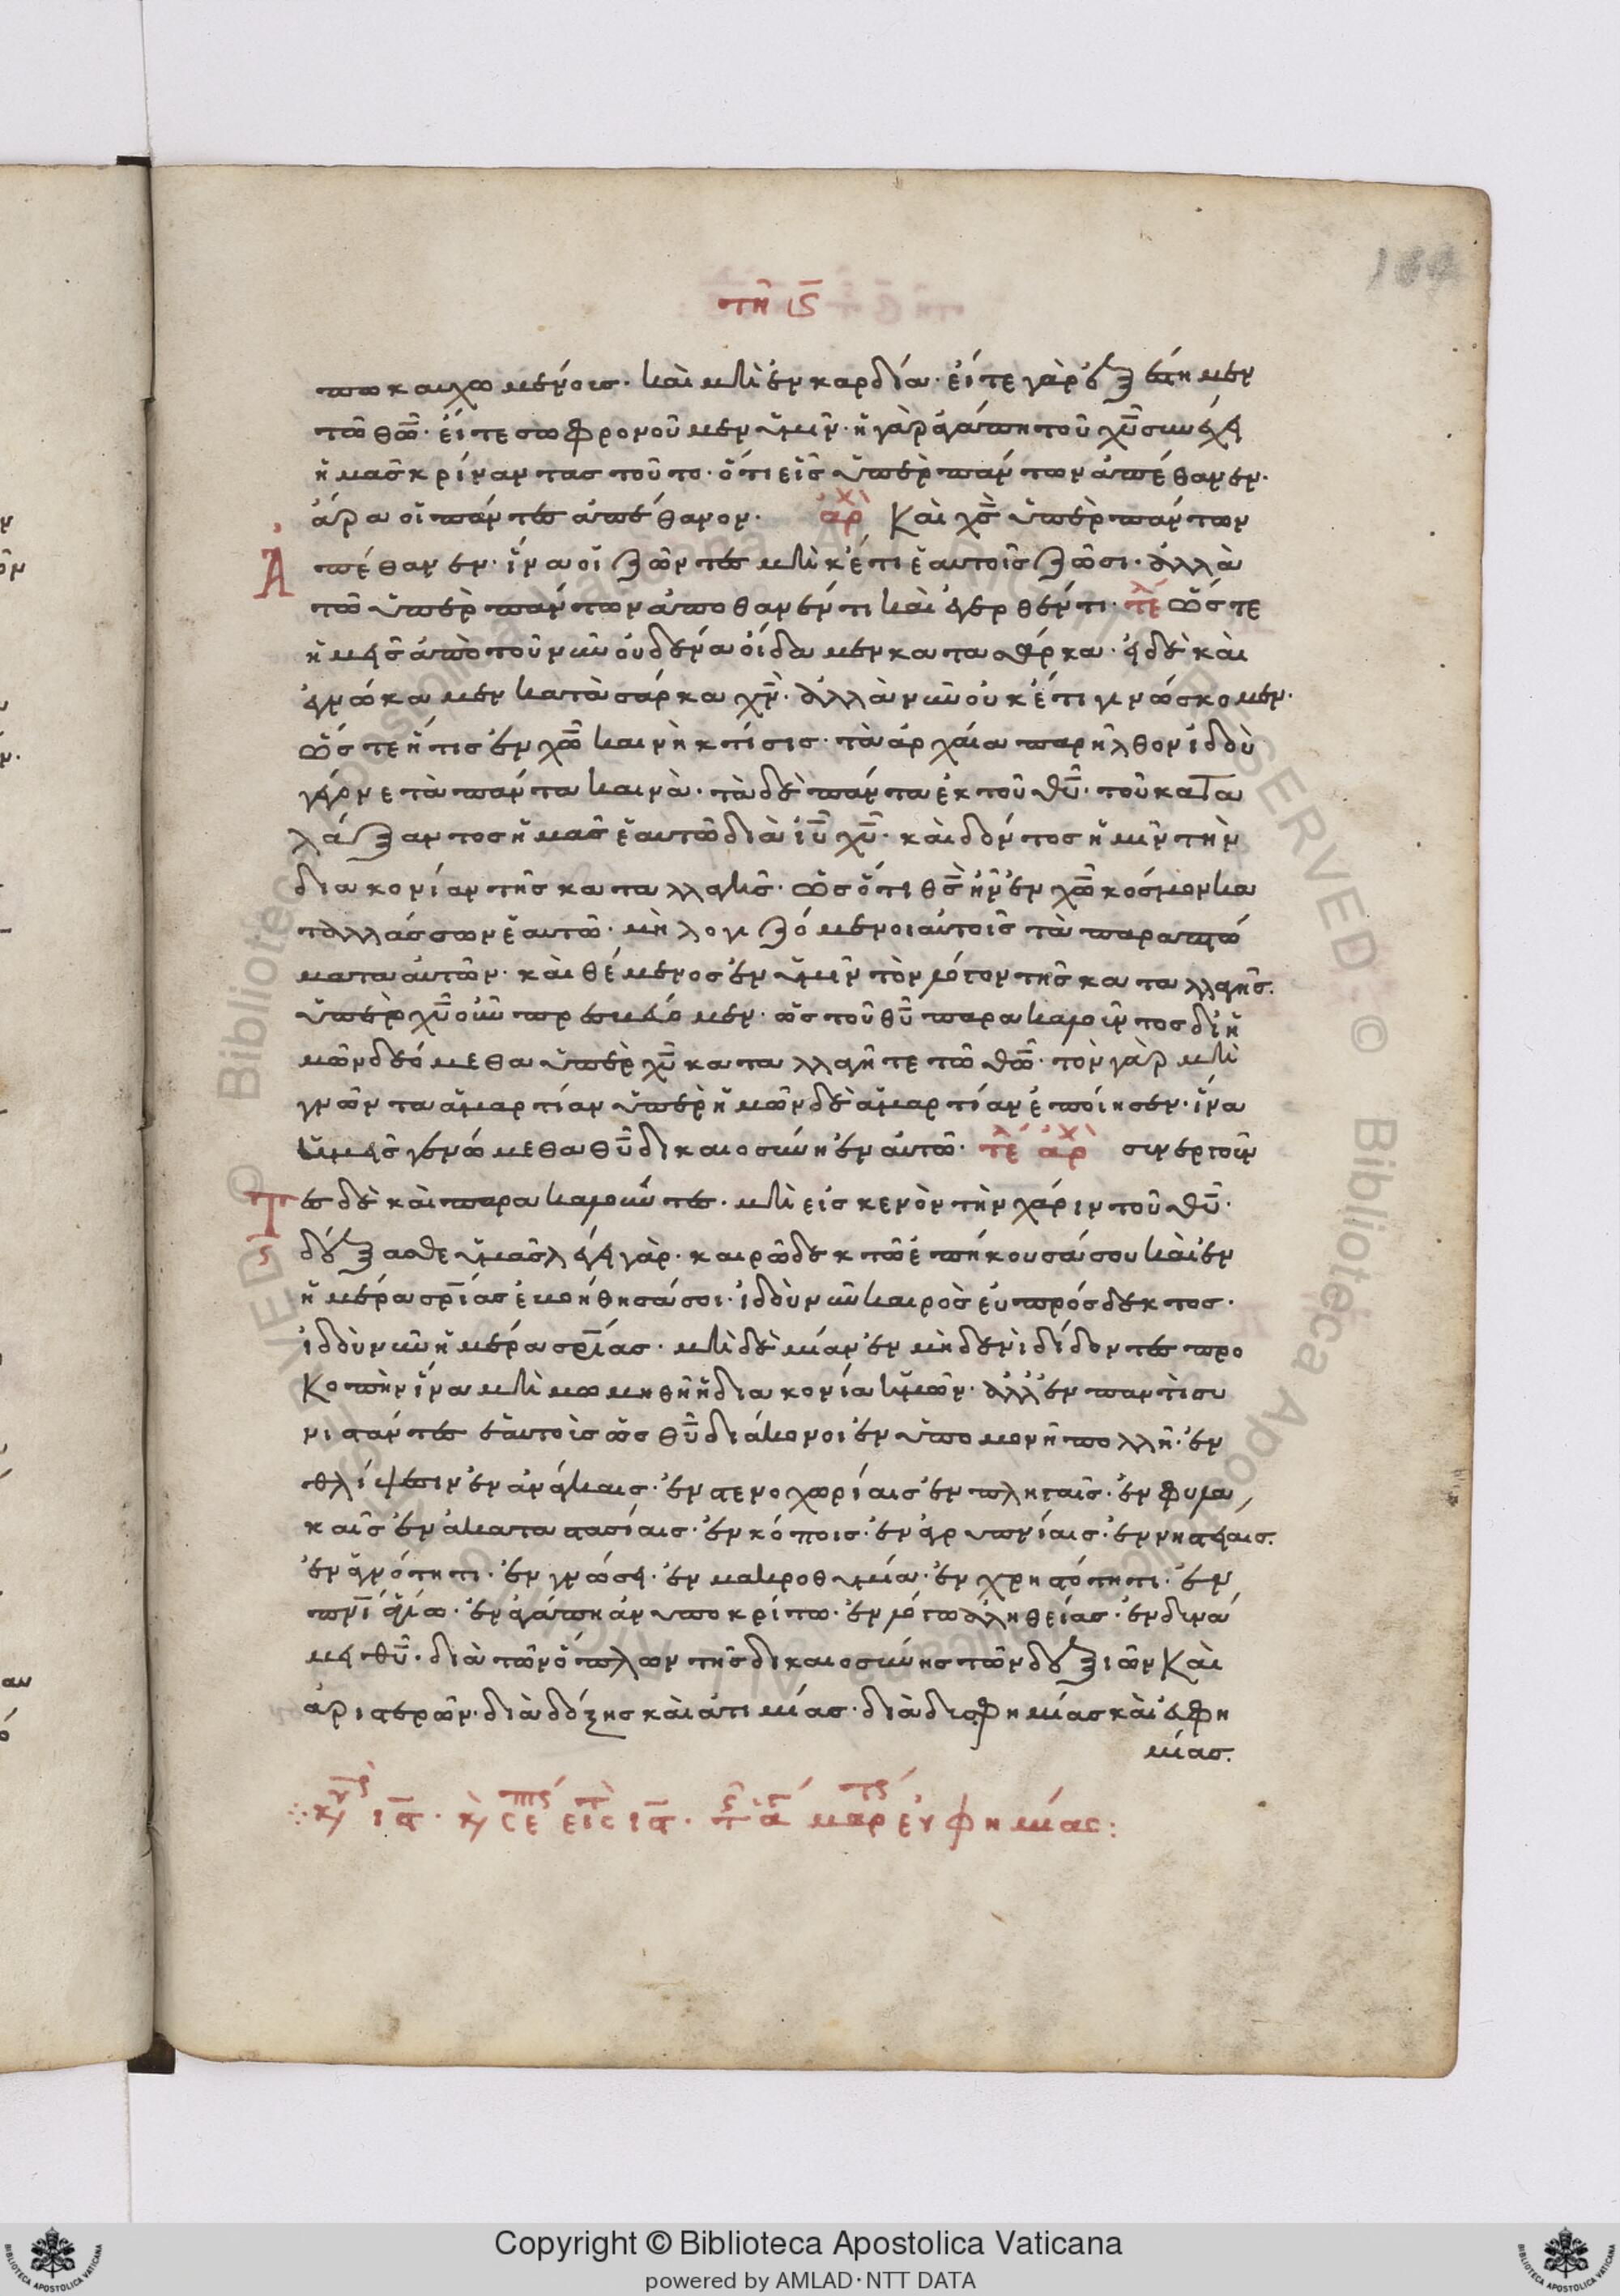 184
τῆ ις
πω καυχωμένοις· καὶ μὴ ἐν καρδία· εἴτε γὰρ ἐξέστημεν
τῶ θῶ· εἴτε σωφρονοῦμεν ὑμῖν· ἡ γὰρ ἀγάπη τοῦ χυ συνέχει
ἡμᾶς κρίναντας τοῦτο· ὅτι εἷς ὑπὲρ πάντων ἀπέθανεν·
ἄρα οἱ πάντες ἀπέθανον· ἀρχ Καὶ χς ὑπὲρ πάντων
Ἀπέθανεν· ἵνα οἱ ζῶντες μὴκέτι ἑαυτοῖς ζῶσι· ἀλλὰ
τῶ ὑπὲρ πάντων ἀποθανέντι καὶ ἐγερθέντι· τελ ὥστε
ἡμεῖς ἀπὸ τοῦ νῦν οὐδένα οἴδαμεν κατασάρκα· εἰ δὲ καὶ
ἐγνώκαμεν κατὰ σάρκα χν· ἀλλὰ νῦν οὐκέτι γινώσκομεν·
ὥστε ἤ τις ἐν χω καινὴ κτίσις· τὰ ἀρχαία παρῆλθον ἰδοὺ
γέγονε τὰ πάντα καινὰ· τὰ δὲ πάντα ἐκ τοῦ θυ· τοῦ κατα
λάξαντος ἡμᾶς ἑαυτῶ διὰ ιυ χυ· καὶ δόντος ἡμῖν τὴν
διακονίαν τῆς καταλλαγῆς· ὡς ὅτι θς ἦν ἐν χω κόσμον κα
ταλλάσσων ἑαυτῶ· μὴ λογιζόμενοι αὐτοῖς τὰ παραπτώ
ματα αὐτῶν· καὶ θέμενος ἐν ὑμῖν τὸν λόγον τῆς καταλλαγῆς·
ὑπὲρ χυ οὖν πρεσβεύομεν· ὡς τοῦ θυ παρακαλοῦντος δι ἡ
μῶν δεόμεθα ὑπὲρ χυ καταλλαγῆτε τῶ θω· τὸν γὰρ μὴ
γνῶντα ἁμαρτίαν ὑπὲρ ἡμῶν δὲ ἁμαρτίαν ἐποίησεν· ἵνα
ἡμεῖς γενώμεθα θυ δικαιοσύνη ἐν αὐτῶ· τελ ἀρχ συνεργοῦν
Τες δὲ καὶ παρακαλοῦντες· μὴ εἰς κενὸν τὴν χάριν τοῦ θυ·
δέξασθε ὑμᾶς λέγει γὰρ· καιρῶ δεκτῶ ἐπήκουσά σου καὶ ἐν
ἡμέρα σρίας ἐβοήθησά σοι· ἰδοὺ νῦν καιρὸς εὐπρόσδεκτος·
ἰδοὺ νῦν ἡμέρα σρίας· μὴ δὲ μίαν ἐν μὴδενὶ δίδοντες προ
Κοπὴν ἵνα μὴ μωμηθῆ ἡ διακονία ὑμῶν· ἀλλ ἐν παντὶ συ
νιστάντες ἑαυτοὶς ὡς θυ διάκονοι ἐν ὑπομονῆ πολλῆ· ἐν
θλίψεσιν ἐν ἀνάγκαις· ἐν στενοχωρίαις ἐν πληγαῖς· ἐν φυλα
καῖς ἐν ἀκαταστασίαις· ἐν κόποις· ἐν ἀγρυπνίαις· ἐν νηστείαις·
ἐν ἁγνότητι· ἐν γνώσει· ἐν μακροθυμία· ἐν χρηστότητι· ἐν
πνι ἁγίω· ἐν ἀγάπη ἀνυποκρίτω· ἐν λόγω ἀληθείας· ἐν δυνά
μει θυ· διὰ τῶν ὅπλων τῆς δικαιοσύνης τῶν δεξιῶν Καὶ
ἀριστερῶν· διὰ δόξης καὶ ἀτιμίας· διὰ δυσφημίας καὶ εὐφη
μίας·
μαρ εὐφημίας: